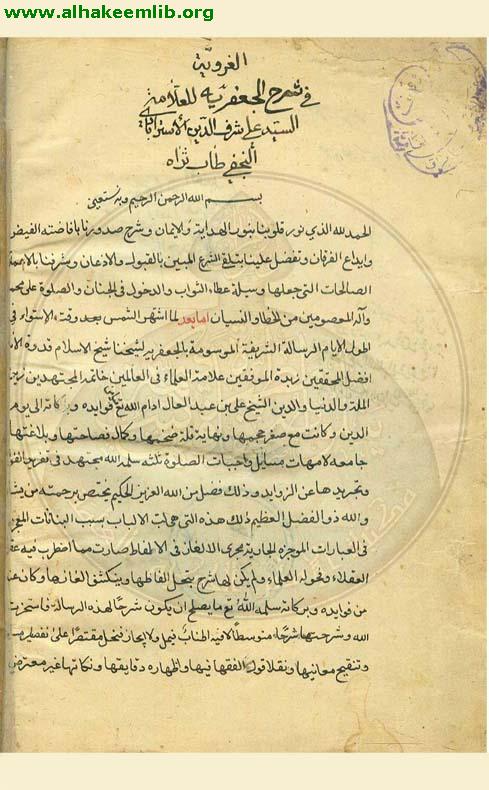 www.alhakeemlib.org
الغروية
في شرح الجعفرية للعلامة
السيد علي شرف الدين الاسترابادي
النجفي طاب ثراه
بسم الله الرحمن الرحيم وبه نستعين
الحمد لله الذي نور قلوبنا بنور الهداية والايمان وشرح صدورنا بافاضته الفيض
وايداع الفرقان وتفضل علينا بتبليغ الشرع المبين بالقبول والاذعان وشرفنا بالاعمال
الصالحات التي جعلها وسيلة عطاء الثواب والدخول في الجنان والصلوة على محمد
وآله المعصومين من الخطا والنسيان اما بعد لما اشتهر الشمس بعد وقت الاستواء في
اطول الايام الرسالة الشريفة الموسومة بالجعفرية لشيخنا شيخ الاسلام قدوة
افضل المحققين زبدة الموفقين علامة العلماء في العالمين خاتمة المجتهدين زين
الملة والدنيا والدين الشيخ علي بن عبد العال ادام الله تع فوايده الى يوم
الدين وكانت مع صغر حجمها ونهاية قلة ضخمها وكمال فصاحتها وبلاغتها
جامعة لامهات مسايل واجبات الصلوة سلمه الله مجتهد في تفريق
وتجريدها عن الزوايد وذلك فضل من الله العزيز الحكيم يختص برحمته من يشاء
والله ذو الفضل العظيم ذلك هذه التي حيرت الالباب سبب البيانات
في العبارات الموجزة الجارية مجرى الالغاز في الالفاظ صارت مما اضطرب فيه
العقلاء وفحول العلماء ولم يكن لها شرح يتحل الفاظها وينكشف الغازها وكان
من فوايده وبركاته سلمه الله تع ما يصلح ان يكون شرحا لهذه الرسالة فاستخرت
الله وشرحتها شرحا متوسطا لا فيه اطناب فيمل ولا ايجاز فيخل مقتصرا على تفصيل
وتنقيح معانيها ونقل اقوال الفقها فيها واظهار دقايقها ونكاتها غير معترض